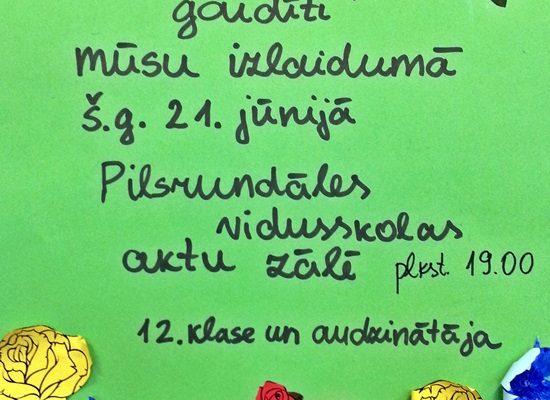 gaidīti
mūsu izlaidumā
š.g. 21. jūnijā
Pilsrundāles
vidusskolas
aktu zālē plkst. 19.00
12. klase un audzinātāja